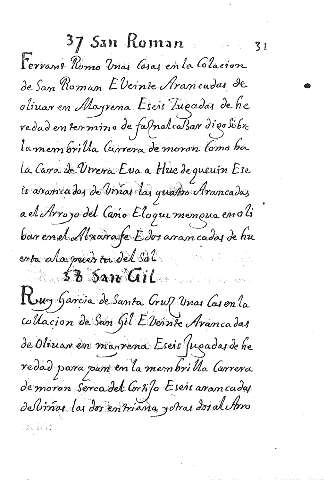 37 San Roman
31
Ferrant Romo Unas Casas en la Colacion
de San Roman E Veinte Arancadas de
olivar en Mayrena E seis Jugadas de he
redad en termino de digo sobre
la membrilla Carrera de moron Como ba
la Cara de Utrera E va a Hue de quein E se
is arancadas de Viñas las quatro Arancadas
a el Arroyo del Caño E lo que mengua en oli
bar en el Abxarafe E dos arancadas de hu
erta a la puerta del Sol
38 San Gil
Ruy Garcia de Santa Cruz Unas Casas en la
collacion de San Gil E Veinte Arancadas
de Olivar en mayrena E seis Jugadas de he
redad para pan en la membrilla Carrera
de moron Serca del Cortijo E seis arancadas
de Viñas las dos en triana y otras dos al Arro